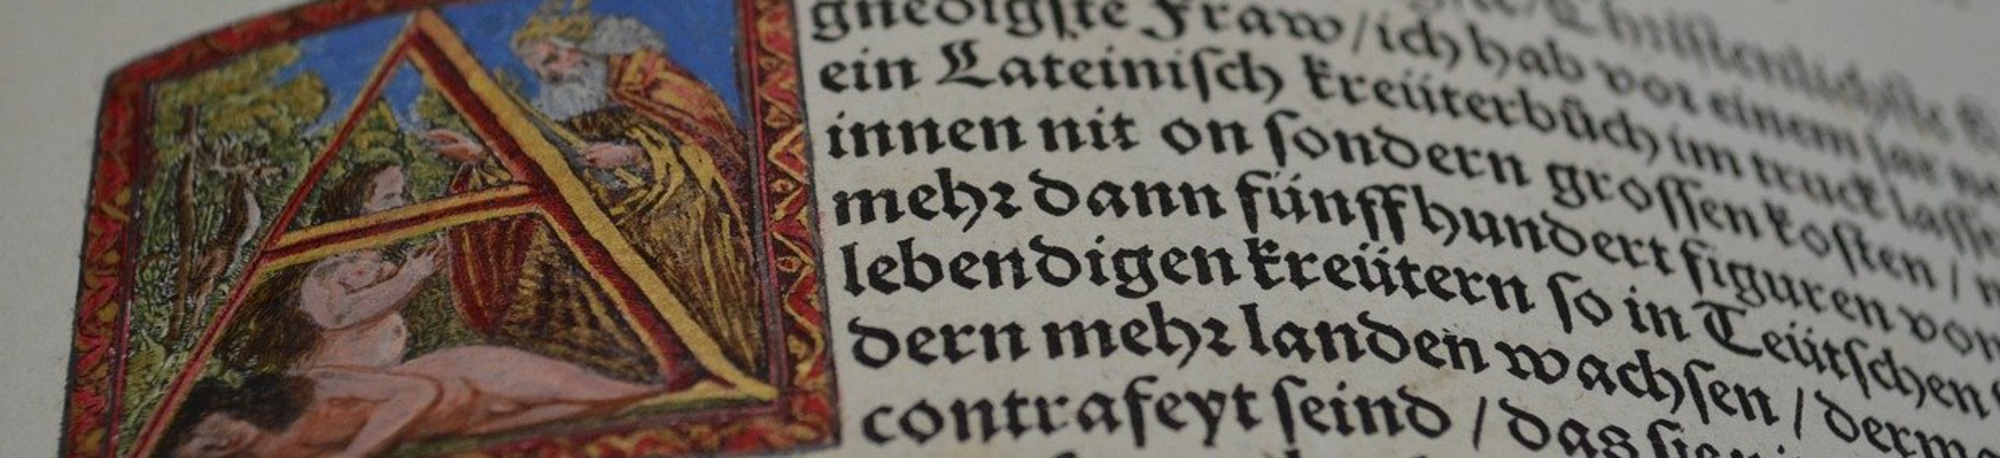 Christenlichste
gnedigste Fraw / ich hab vor einem jar
ein Lateinisch kreüterbuͦch im truck lasse
innen nit on sondern grossen kosten /
mehr dann fünffhundert figuren von
lebendigen kreütern so in Teütschen
dern mehr landen wachsen / derma
contrafeyt seind / das sie